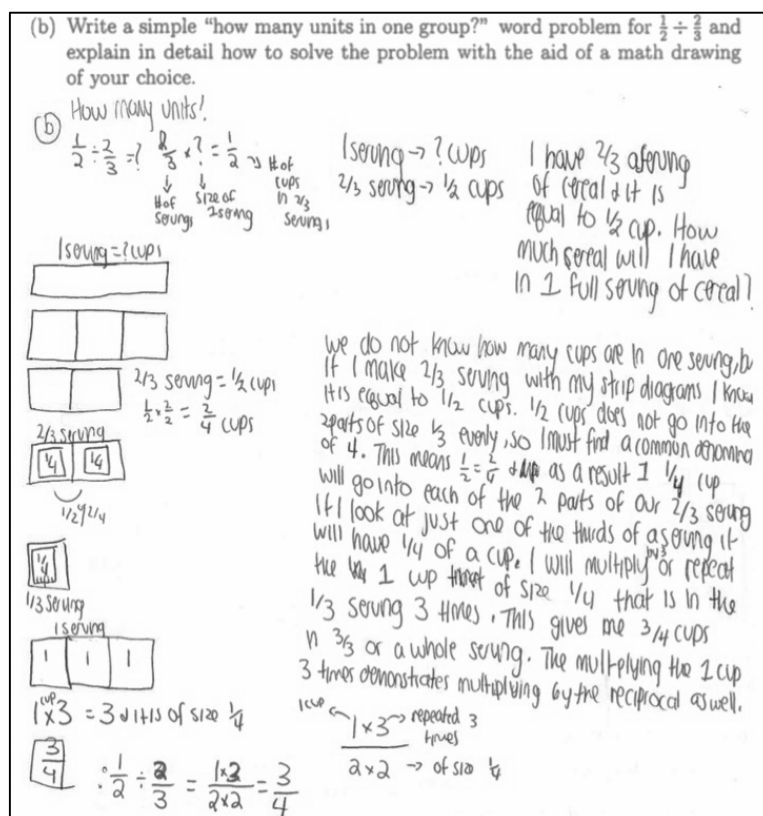 (b) Write a simple “how many units in one group?” word problem for 1/2 ÷ 2/3 and
explain in detail how to solve the problem with the aid of a math drawing
of your choice.
(b) How many units!
1/2 ÷ 2/3 = ? 2/3 × ? = 1/2 → # of cups in 2/3 servings
↓ # of servings
↓ size of 1 serving
1 serving → ? cups
2/3 serving → 1/2 cups
I have 2/3 a serving
of cereal & it is
equal to 1/2 cup. How
much cereal will I have
in 1 full serving of cereal?
1 serving = ? cups
2/3 serving = 1/2 cups
1/2 × 2/2 = 2/4 cups
2/3 serving
1/4 1/4
1/2 2/4
1/4
1/3 serving
1 serving
1 1 1
1 cup × 3 = 3 & it is of size 1/4
3/4
∴ 1/2 ÷ 2/3 = 1×3/2×2 = 3/4
we do not know how many cups are in one serving, b
if I make 2/3 serving with my strip diagrams I know
it is equal to 1/2 cups. 1/2 cups does not go into the
2 parts of size 1/3 evenly, so I must find a common denomina
of 4. This means 1/2 = 2/4 & as a result 1 1/4 cup
will go into each of the 2 parts of our 2/3 serving
If I look at just one of the thirds of a serving it
will have 1/4 of a cup. I will multiply by 3 or repeat
the 1 cup of size 1/4 that is in the
1/3 serving 3 times. This gives me 3/4 cups
in 3/3 or a whole serving. The multplying the 1 cup
3 times demonstrates multiplying by the reciprocal as well.
1 cup ← 1×3 → repeated 3 times
2×2 → of size 1/4